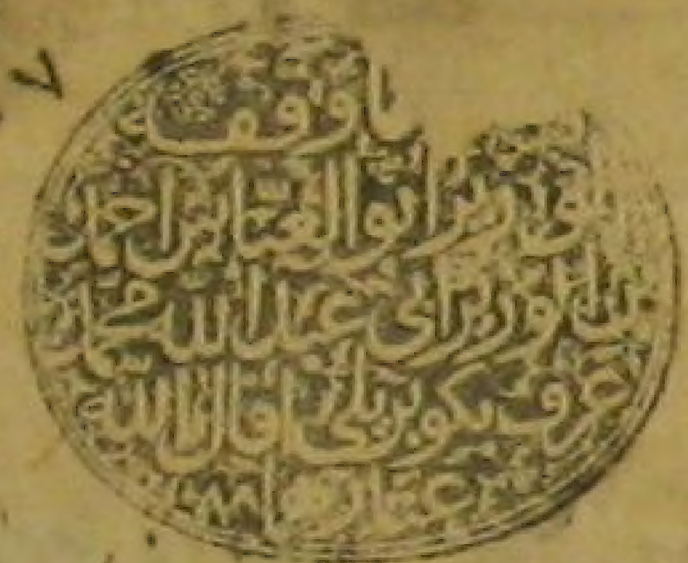 ٧
ما وقفه
الوزير ابو العباس احمد
بن الوزير ابي عبد الله محمد
عرف بكوبريلي اقال الله
عثارهما